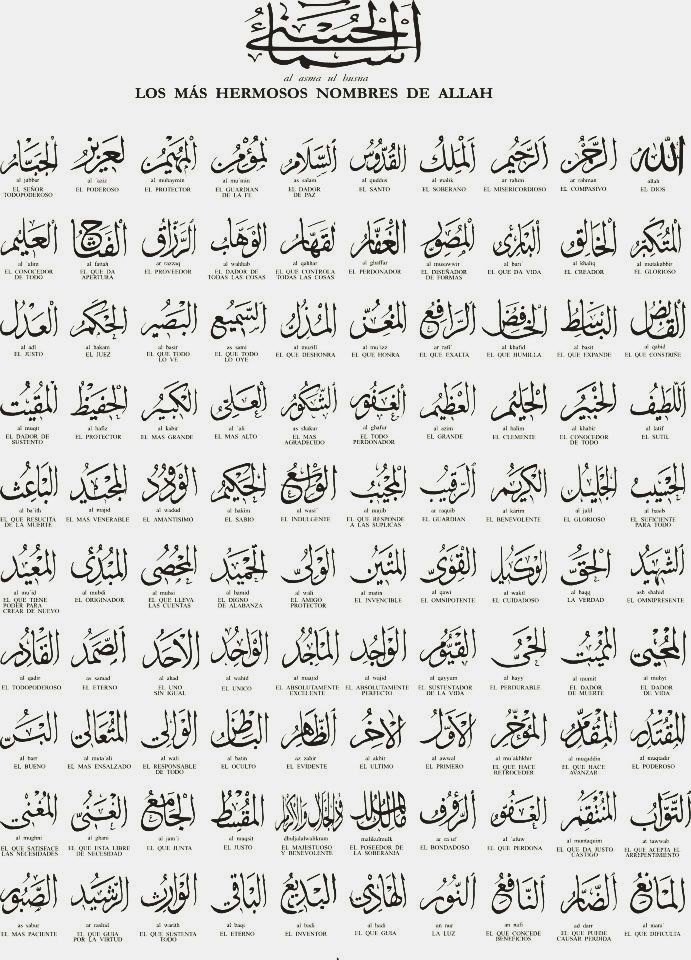 أسماء الحسنى
al asma ul husna
LOS MÁS HERMOSOS NOMBRES DE ALLAH
الله
allah
EL DIOS
الرحمن
ar rahman
EL COMPASIVO
الرحيم
ar rahim
EL MISERICORDIOSO
الملك
al malik
EL SOBERANO
القدوس
al quddus
EL SANTO
السلام
as salam
EL DADOR
DE PAZ
المؤمن
al mu min
EL GUARDIAN
DE LA FE
المهيمن
al muhaymin
EL PROTECTOR
العزيز
al 'aziz
EL PODEROSO
الجبار
al jabbar
EL SEÑOR
TODOPODEROSO
المتكبر
al mutakabbir
EL GLORIOSO
الخالق
al khaliq
EL CREADOR
البارئ
al bari'
EL QUE DA VIDA
المصور
al musawwir
EL DISEÑADOR
DE FORMAS
الغفار
al ghaffar
EL PERDONADOR
القهار
al qahhar
EL QUE CONTROLA
TODAS LAS COSAS
الوهاب
al wahhab
EL DADOR DE
TODAS LAS COSAS
الرزاق
ar razzaq
EL PROVEEDOR
الفتاح
al fattah
EL QUE DA
APERTURA
العليم
al 'alim
EL CONOCEDOR
DE TODO
القابض
al qabid
EL QUE CONSTRIÑE
الباسط
al basit
EL QUE EXPANDE
الخافض
al khafid
EL QUE HUMILLA
الرافع
ar rafi'
EL QUE EXALTA
المعز
al mu'izz
EL QUE HONRA
المذل
al muzill
EL QUE DESHONRA
السميع
as sami
EL QUE TODO
LO OYE
البصير
al basir
EL QUE TODO
LO VE
الحكم
al hakam
EL JUEZ
العدل
al adl
EL JUSTO
اللطيف
al latif
EL SUTIL
الخبير
al khabir
EL CONOCEDOR
DE TODO
الحليم
al halim
EL CLEMENTE
العظيم
al azim
EL GRANDE
الغفور
al ghafur
EL TODO
PERDONADOR
الشكور
as shakur
EL MAS
AGRADECIDO
العلي
al 'ali
EL MAS ALTO
الكبير
al kabir
EL MAS GRANDE
الحفيظ
al hafiz
EL PROTECTOR
المقيت
al muqit
EL DADOR DE
SUSTENTO
الحسيب
al hasib
EL SUFICIENTE
PARA TODO
الجليل
al jalil
EL GLORIOSO
الكريم
al karim
EL BENEVOLENTE
الرقيب
ar raquib
EL GUARDIAN
المجيب
al mujib
EL QUE RESPONDE
A LAS SUPLICAS
الواسع
al wasi'
EL INDULGENTE
الحكيم
al hakim
EL SABIO
الودود
al wadud
EL AMANTISIMO
المجيد
al majid
EL MAS VENERABLE
الباعث
al ba'ith
EL QUE RESUCITA
DE LA MUERTE
الشهيد
ash shahid
EL OMNIPRESENTE
الحق
al haqq
LA VERDAD
الوكيل
al wakil
EL CUIDADOSO
القوي
al qawi
EL OMNIPOTENTE
المتين
al matin
EL INVENCIBLE
الولي
al wali
EL AMIGO
PROTECTOR
الحميد
al hamid
EL DIGNO
DE ALABANZA
المحصي
al muhsi
EL QUE LLEVA
LAS CUENTAS
المبدئ
al mubdi
EL ORIGINADOR
المعيد
al mu'id
EL QUE TIENE
PODER PARA
CREAR DE NUEVO
المحيي
al muhyi
EL DADOR
DE VIDA
المميت
al mumit
EL DADOR
DE MUERTE
الحي
al hayy
EL PERDURABLE
القيوم
al qayyum
EL SUSTENTADOR
DE LA VIDA
الواجد
al wajid
EL ABSOLUTAMENTE
PERFECTO
الماجد
al maajid
EL ABSOLUTAMENTE
EXCELENTE
الواحد
al wahid
EL UNICO
الاحد
al ahad
EL UNO
SIN IGUAL
الصمد
as samad
EL ETERNO
القادر
al qadir
EL TODOPODEROSO
المقتدر
al muqtadir
EL PODEROSO
المقدم
al muqaddin
EL QUE HACE
AVANZAR
المؤخر
al mu'akhkhir
EL QUE HACE
RETROCEDER
الاول
al awwal
EL PRIMERO
الاخر
al akhir
EL ULTIMO
الظاهر
az zahir
EL EVIDENTE
الباطن
al batin
EL OCULTO
الوالي
al wali
EL RESPONSABLE
DE TODO
المتعالي
al muta'ali
EL MAS ENSALZADO
البر
al barr
EL BUENO
التواب
at tawwab
EL QUE ACEPTA EL
ARREPENTIMIENTO
المنتقم
al muntaquim
EL QUE DA JUSTO
CASTIGO
العفو
al 'afuw
EL QUE PERDONA
الرؤوف
ar ra'uf
EL BONDADOSO
مالك الملك
malikulmulk
EL POSEEDOR DE
LA SOBERANIA
ذو الجلال والاكرام
dhuljalalwalikram
EL MAJESTUOSO
Y BENEVOLENTE
المقسط
al muqsit
EL JUSTO
الجامع
al jami'
EL QUE JUNTA
الغني
al ghani
EL QUE ESTA LIBRE
DE NECESIDAD
المغني
al mughni
EL QUE SATISFACE
LAS NECESIDADES
المانع
al mani'
EL QUE DIFICULTA
الضار
ad darr
EL QUE PUEDE
CAUSAR PERDIDA
النافع
an nafi
EL QUE CONCEDE
BENEFICIOS
النور
an nur
LA LUZ
الهادي
al hadi
EL QUE GUIA
البديع
al badi
EL INVENTOR
الباقي
al baqi
EL ETERNO
الوارث
al warith
EL QUE SUSTENTA
TODO
الرشيد
ar rashid
EL QUE GUIA
POR LA VIRTUD
الصبور
as sabur
EL MAS PACIENTE